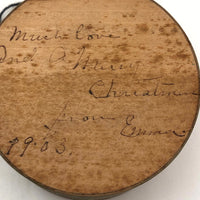 Much love
and
Christmas
from
Emma
1903